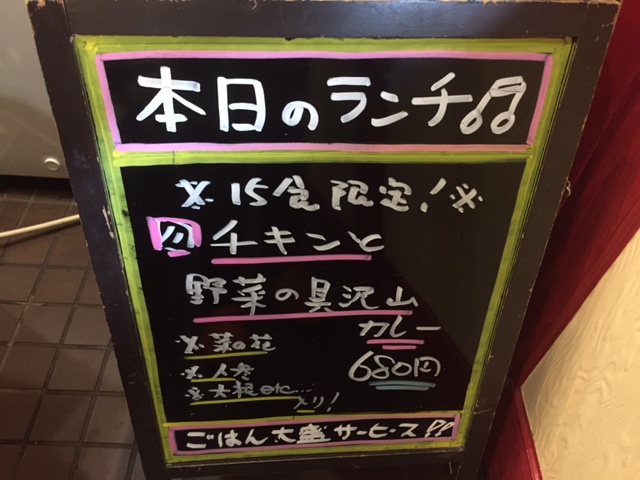 本日のランチ♫
※15食限定!※
チキンと
野菜の具沢山
カレー
※菜の花
680円
※人参
※大根etc...
入り!
ごはん大盛サービス!!